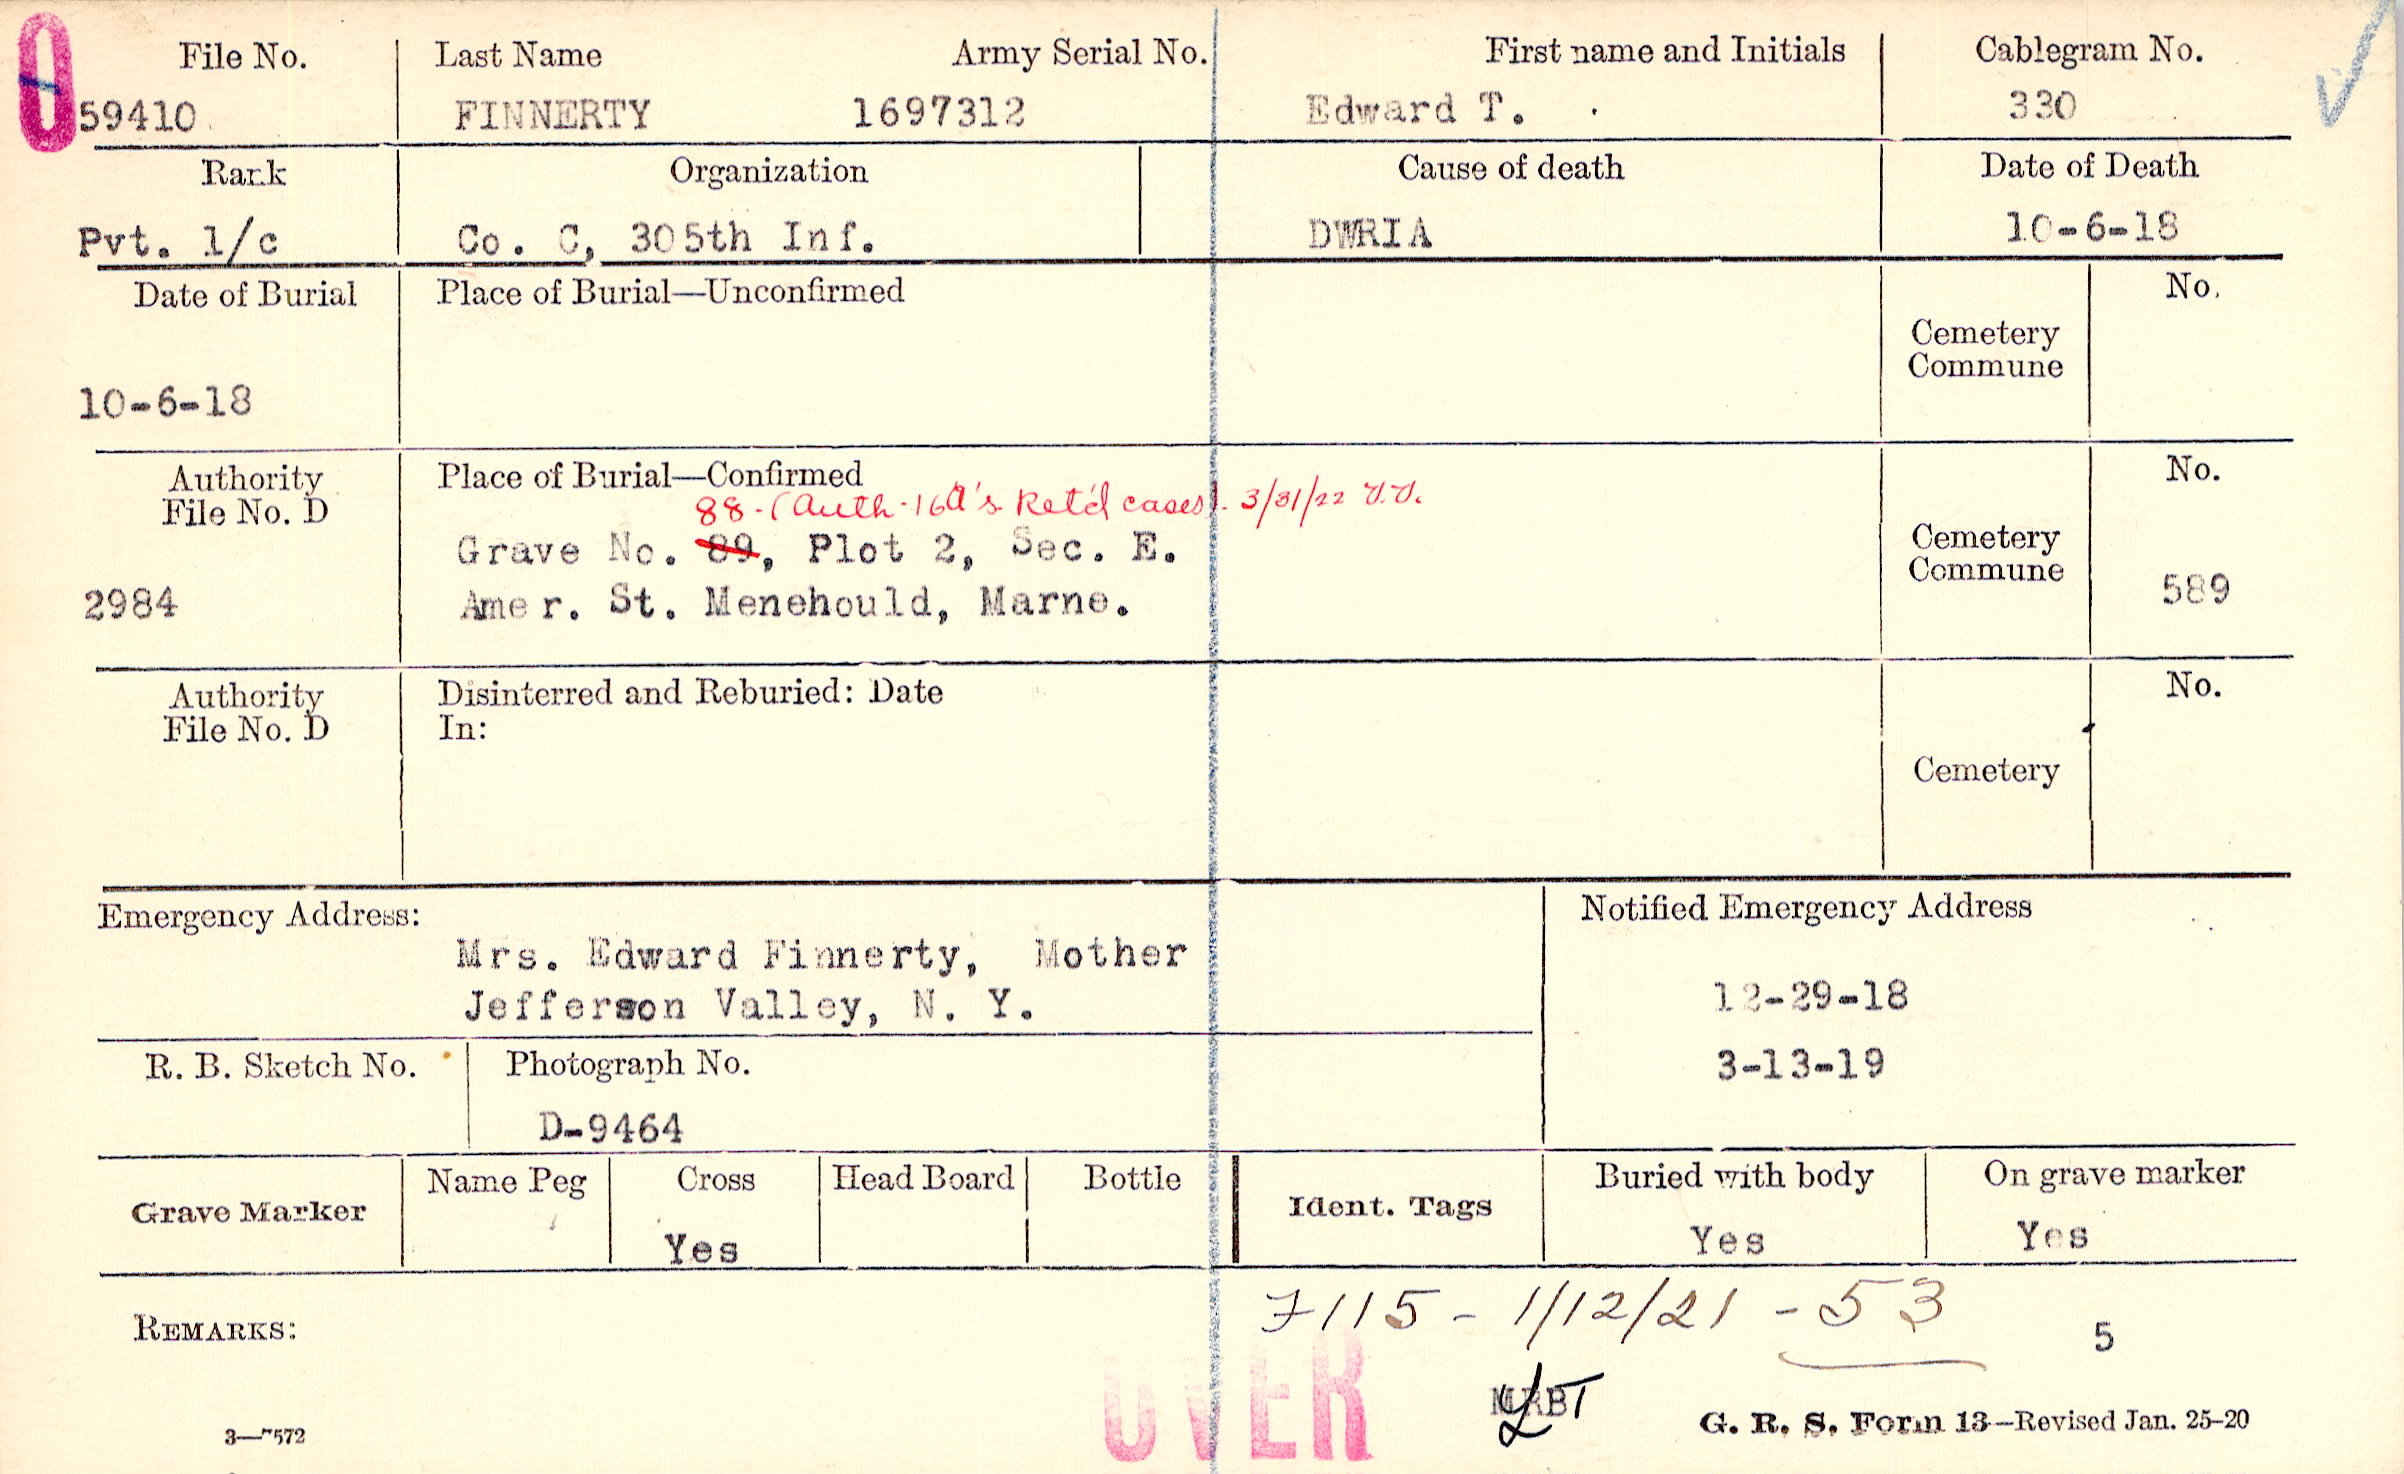 0
File No. Last Name Army Serial No. First name and Initials Cablegram No.
59410 FINNERTY 1697312 Edward T. 330
Rank Organization Cause of death Date of Death
Pvt. 1/c Co. C, 305th Inf. DWRIA 10-6-18
Date of Burial Place of Burial—Unconfirmed No.
Cemetery
Commune
10-6-18
Authority Place of Burial—Confirmed No.
File No. D
88-(Auth-16A's Ret'd cases). 3/31/22
Grave No. 89, Plot 2, Sec. E. Cemetery
Commune
2984 Amer. St. Menehould, Marne. 589
Authority Disinterred and Reburied: Date No.
File No. D In:
Cemetery
Emergency Address: Notified Emergency Address
Mrs. Edward Finnerty, Mother
Jefferson Valley, N. Y. 12-29-18
R. B. Sketch No. Photograph No. 3-13-19
D-9464
Grave Marker Name Peg Cross Head Board Bottle Ident. Tags Buried with body On grave marker
Yes Yes Yes
7115 - 1/12/21 - 53
REMARKS: 5
OVER
G. R. S. Form 13—Revised Jan. 25-20
3—7572